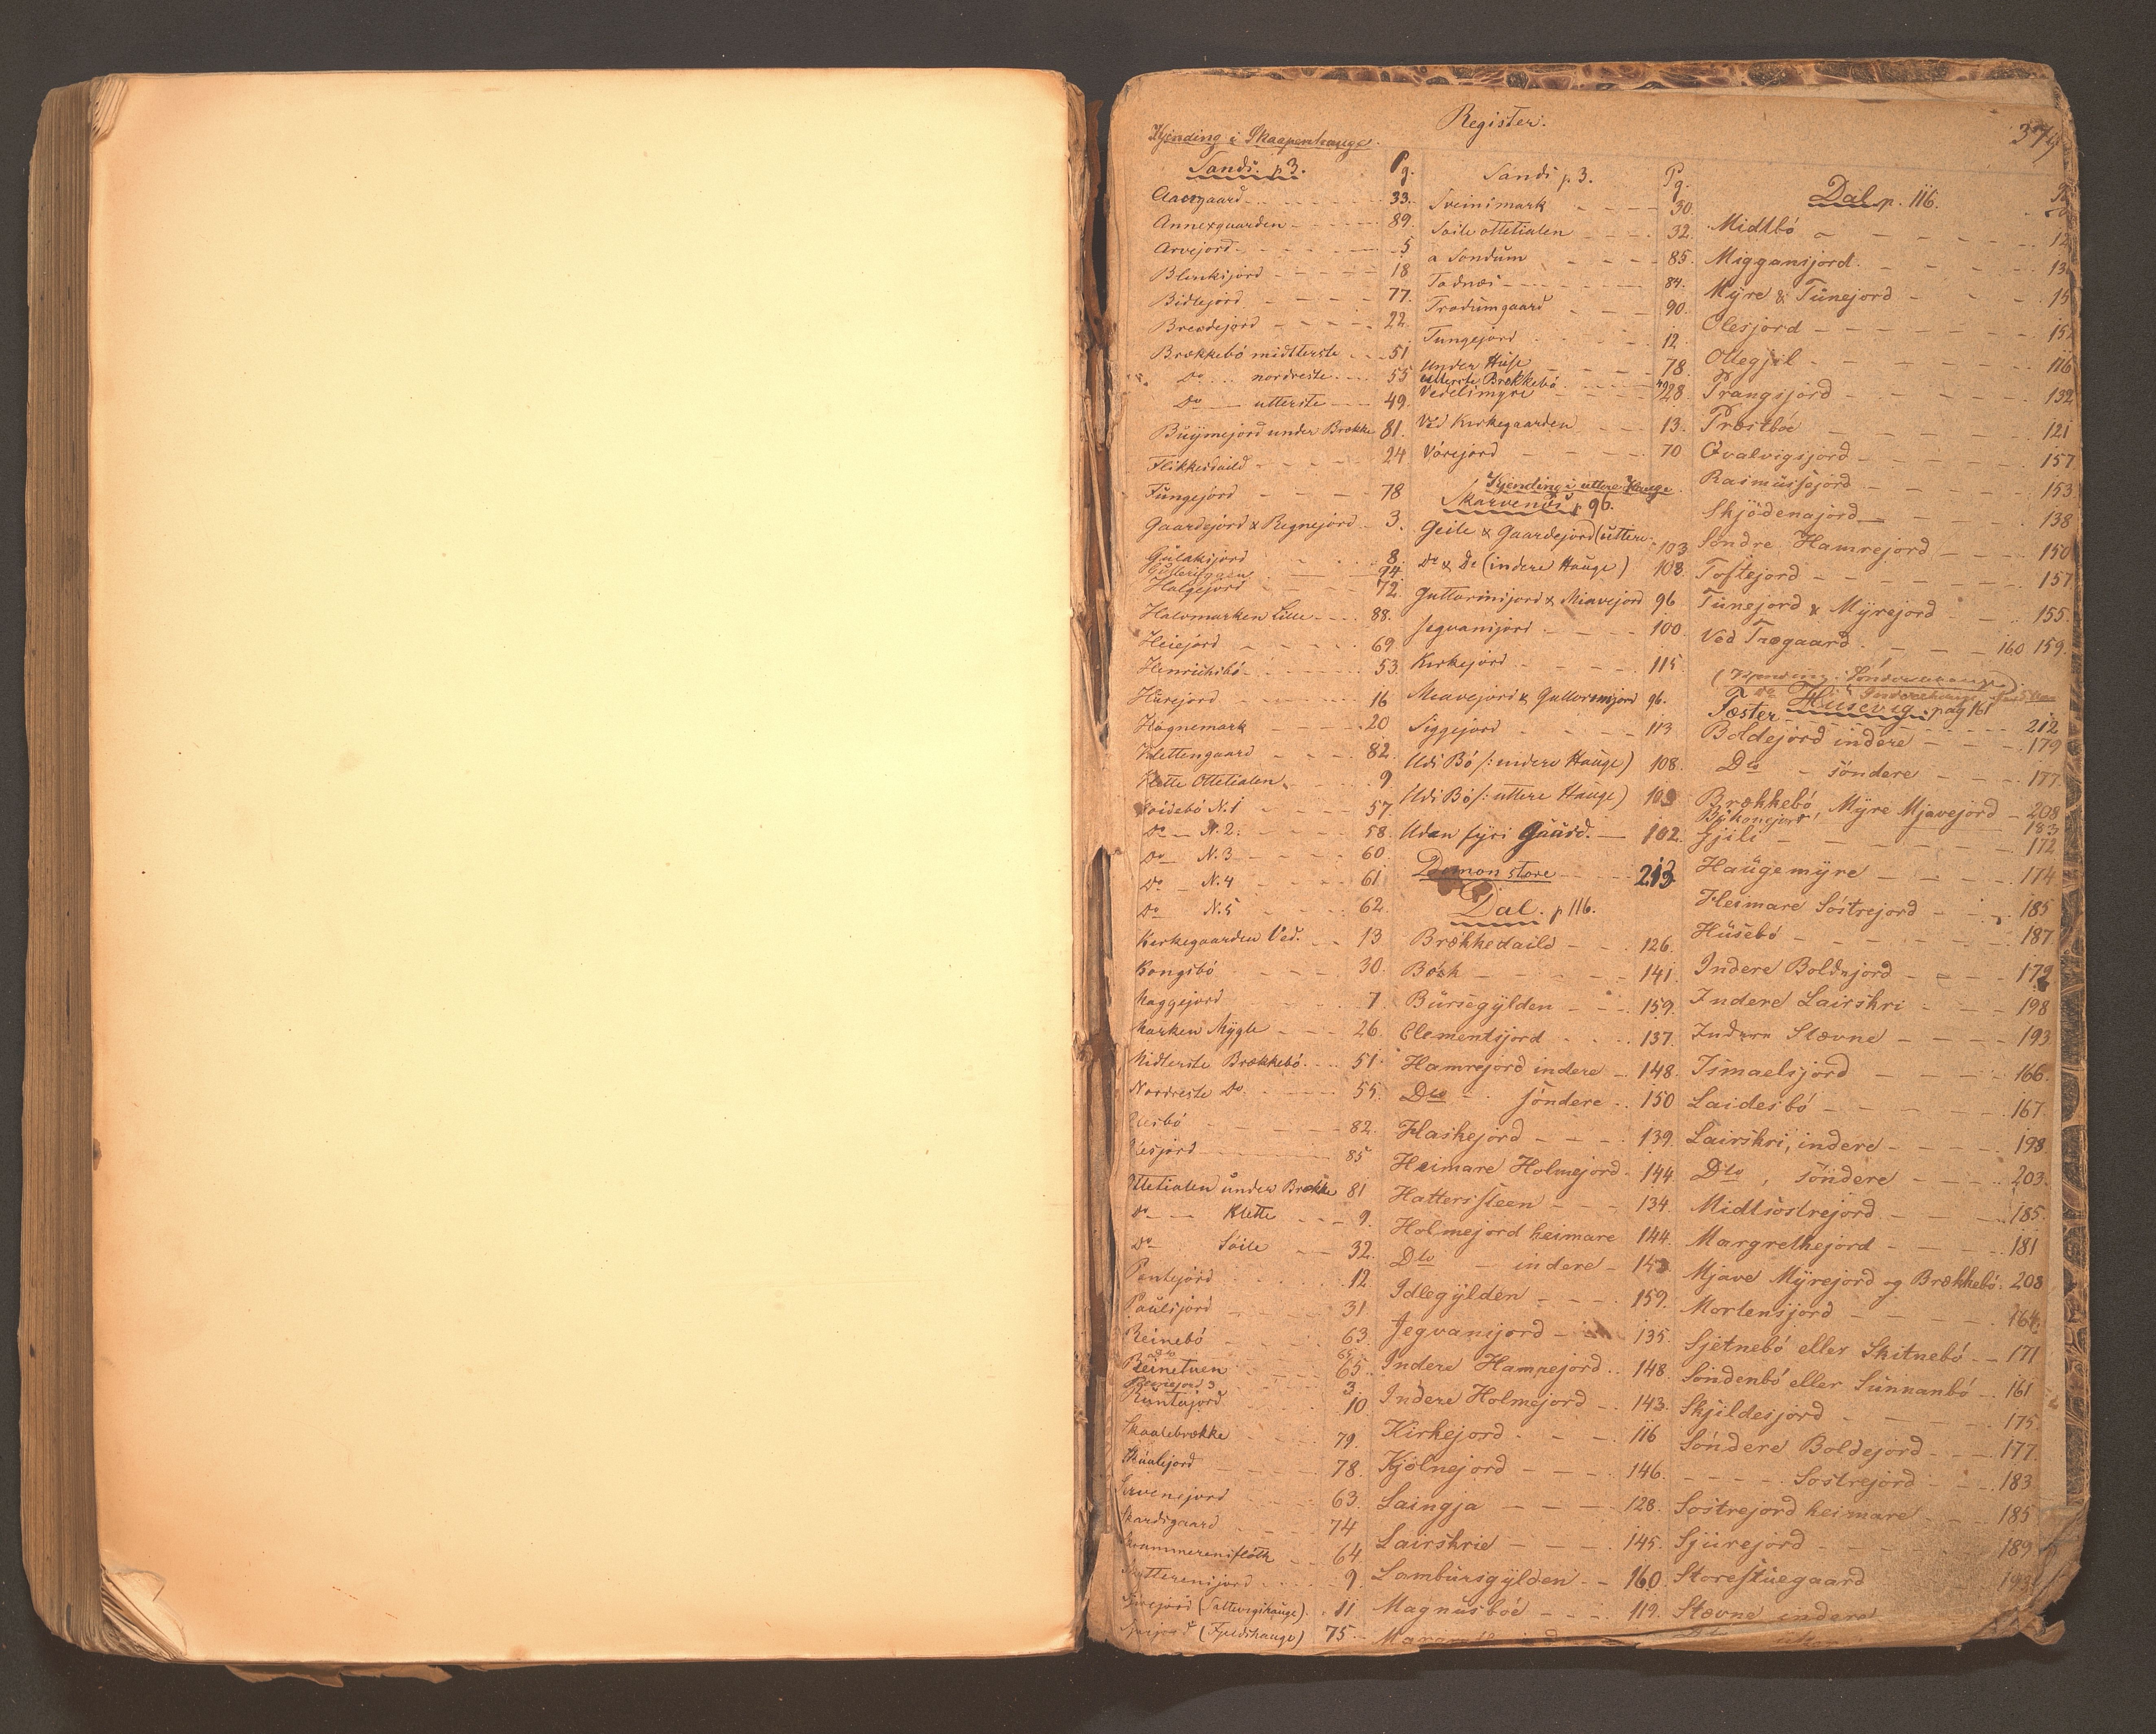 Register.
379
Kjending i Skaapenhauge.
Sandi. p 3.
Pg.
Aaergaard 33.
Annexgaarden 89.
Arvejord 5
Blenksjord 18
Bidlejord 77.
Breidejord 22
Brækkebö midtterste 51
Do nordreste 55
Do utterste 49.
Büÿmejord under Brække 81.
Flikkesdaild 24
Fungejord 78
Gaardejord & Regnejord 3.
Gulaksjord 8.
94
Halgejord 72
Halvmarken Lille 88.
Heiejord 69
Henrichsbö 53
Hürejord 16
Högnemark 20
Klettengaard 82.
Klette Ottetialen 9
Loidebö N. 1 57.
Do N. 2. 58.
Do N. 3 60.
Do N. 4 61
Do N. 5 62.
Kirkegaarden Ved. 13
Kongsbö 30.
Maggejord 7
Marken Mÿgle 26.
Midterste Brækkebö 51.
Nordreste Do. 55.
Nesbö 82.
Nesjord 85
Ottetialen under Brække 81
Do Klette 9.
Do Söile 32.
Pentejord 12
Paulsjord 31
Reinebö 63.
Reinetuen 65.
3.
Runtejord 10
Skaalebrække 79.
Skaalejord 78
63.
Skardsgaard 74
64
9
(Saltvigshauge). 11
(Fjeldshauge) 75
Sandi p 3.
Pg.
Sveinsmark 30.
Söile ottetialen 32.
a Söndum 85.
Tadnæs 84.
Trodumgaard 90.
Tungejord 12
Under Huse 78.
utterste Brækkebö 49
Vedelsmyre 28
Ved Kirkegaarden 13.
Vörejord 70
Kjending i uttere Hauge
Skarvenæs p 96.
Geile & Gaardejord (uttere 103
Do & Do (indere Hauge) 108.
Guttormsjord & Miavejord 96
Jegvansjord 100.
Kirkejord 115
Miavejord & Guttormsjord 96.
Siggejord 113
Udi Bö (: indere Hauge) 108.
Udi Bö (: uttere Hauge) 103
Uden fyri Gaard. 102.
Dömon store 213
Dal. p 116.
Brækkedaild 126.
Bösk 141.
Bürsegÿlden 159.
Clementsjord 137.
Hamrejord indere 148.
Dto söndere 150
Haskejord 139.
Heimare Holmejord 144.
Hattersteen 134.
Holmejord heimare 144.
Dto indere 143
Idlegÿlden 159.
Jegvansjord 135.
Indere Hamrejord 148.
Indere Holmejord 143.
Kirkejord 116
Kjölnejord 146.
Laingja 128.
Lairskrie 145.
Lambürsgÿlden 160
Magnusböe 119.
Dal p. 116.
Midtbö 12
Miggansjord 13
Mÿre & Tünejord 15
Olesjord 15
Ottegjil 116
Prangsjord 132
Præstböe 121
Qvalvigsjord 157
Rasmussejord 153
Skjödenajord 138
Söndre Hamrejord 150
Toftejord 157
Tünejord & Mÿrejord 155.
Ved Trægaard 160 159.
(Kjending i Sönderehauge)
Husevig pag 161
Fæster 212
Boldejord indere 179
Dto söndere 177
Brækkebö, Mÿre Mjavejord 208
Bÿkonejord 183
Gjili 172
Haugemÿre 174
Heimare Söstrejord 185
Hüsebö 187
Indere Boldejord 179
Indere Lairskri 198
Indere Stævne 193
Ismaelsjord 166.
Laidesbö 167
Lairskri, indere 198
Dto, söndere 203.
Midtsöstrejord 185.
Margrethejord 181
Mjave Mÿrejord og Brækkebö. 208
Mortensjord 164.
Sjetnebö eller Skitnebö 171
Söndenbö eller Sunnanbö 161
Skjildesjord 175
Söndere Boldejord 177.
Söstrejord 183
Söstrejord heimare 185
Sjürejord 189
Storestuegaard
Stævne indere